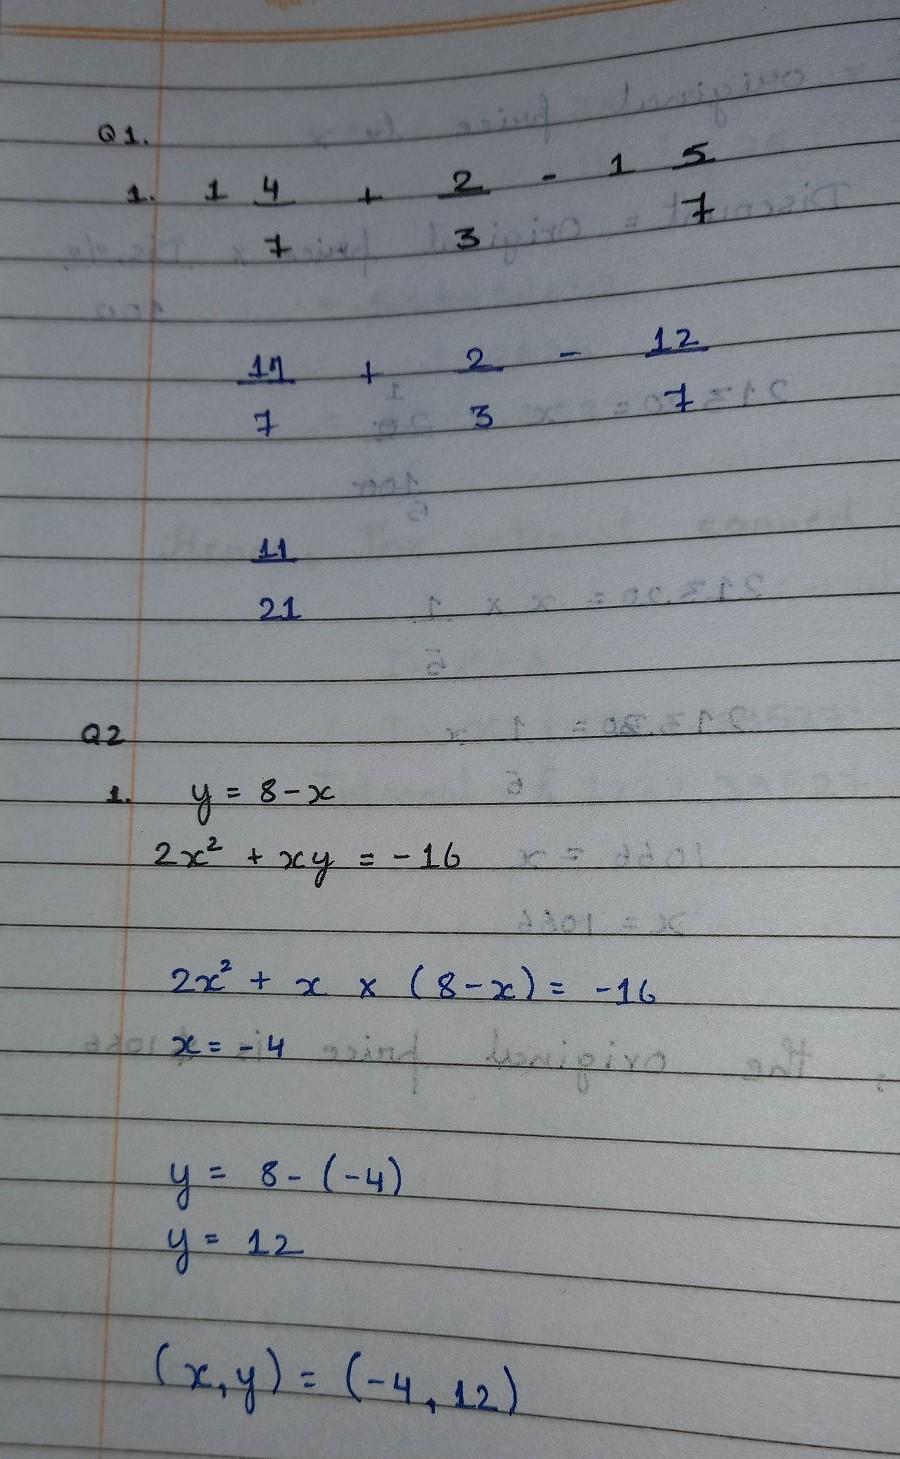 Q1.
1. 1 4/7 + 2/3 - 1 5/7
11/7 + 2/3 - 12/7
11/21
Q2
1. y = 8 - x
2x² + xy = -16
2x² + x × (8 - x) = -16
x = -4
y = 8 - (-4)
y = 12
(x, y) = (-4, 12)